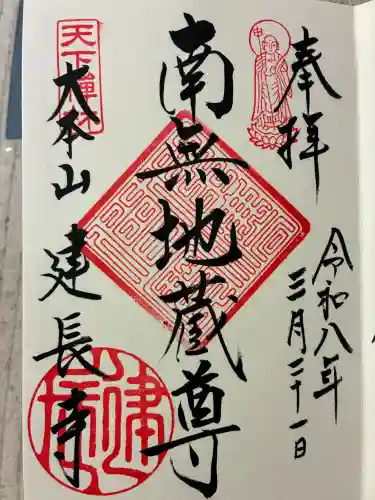 奉拝
令和八年
三月二十一日
南無地蔵尊
天下禅林
大本山
建長寺